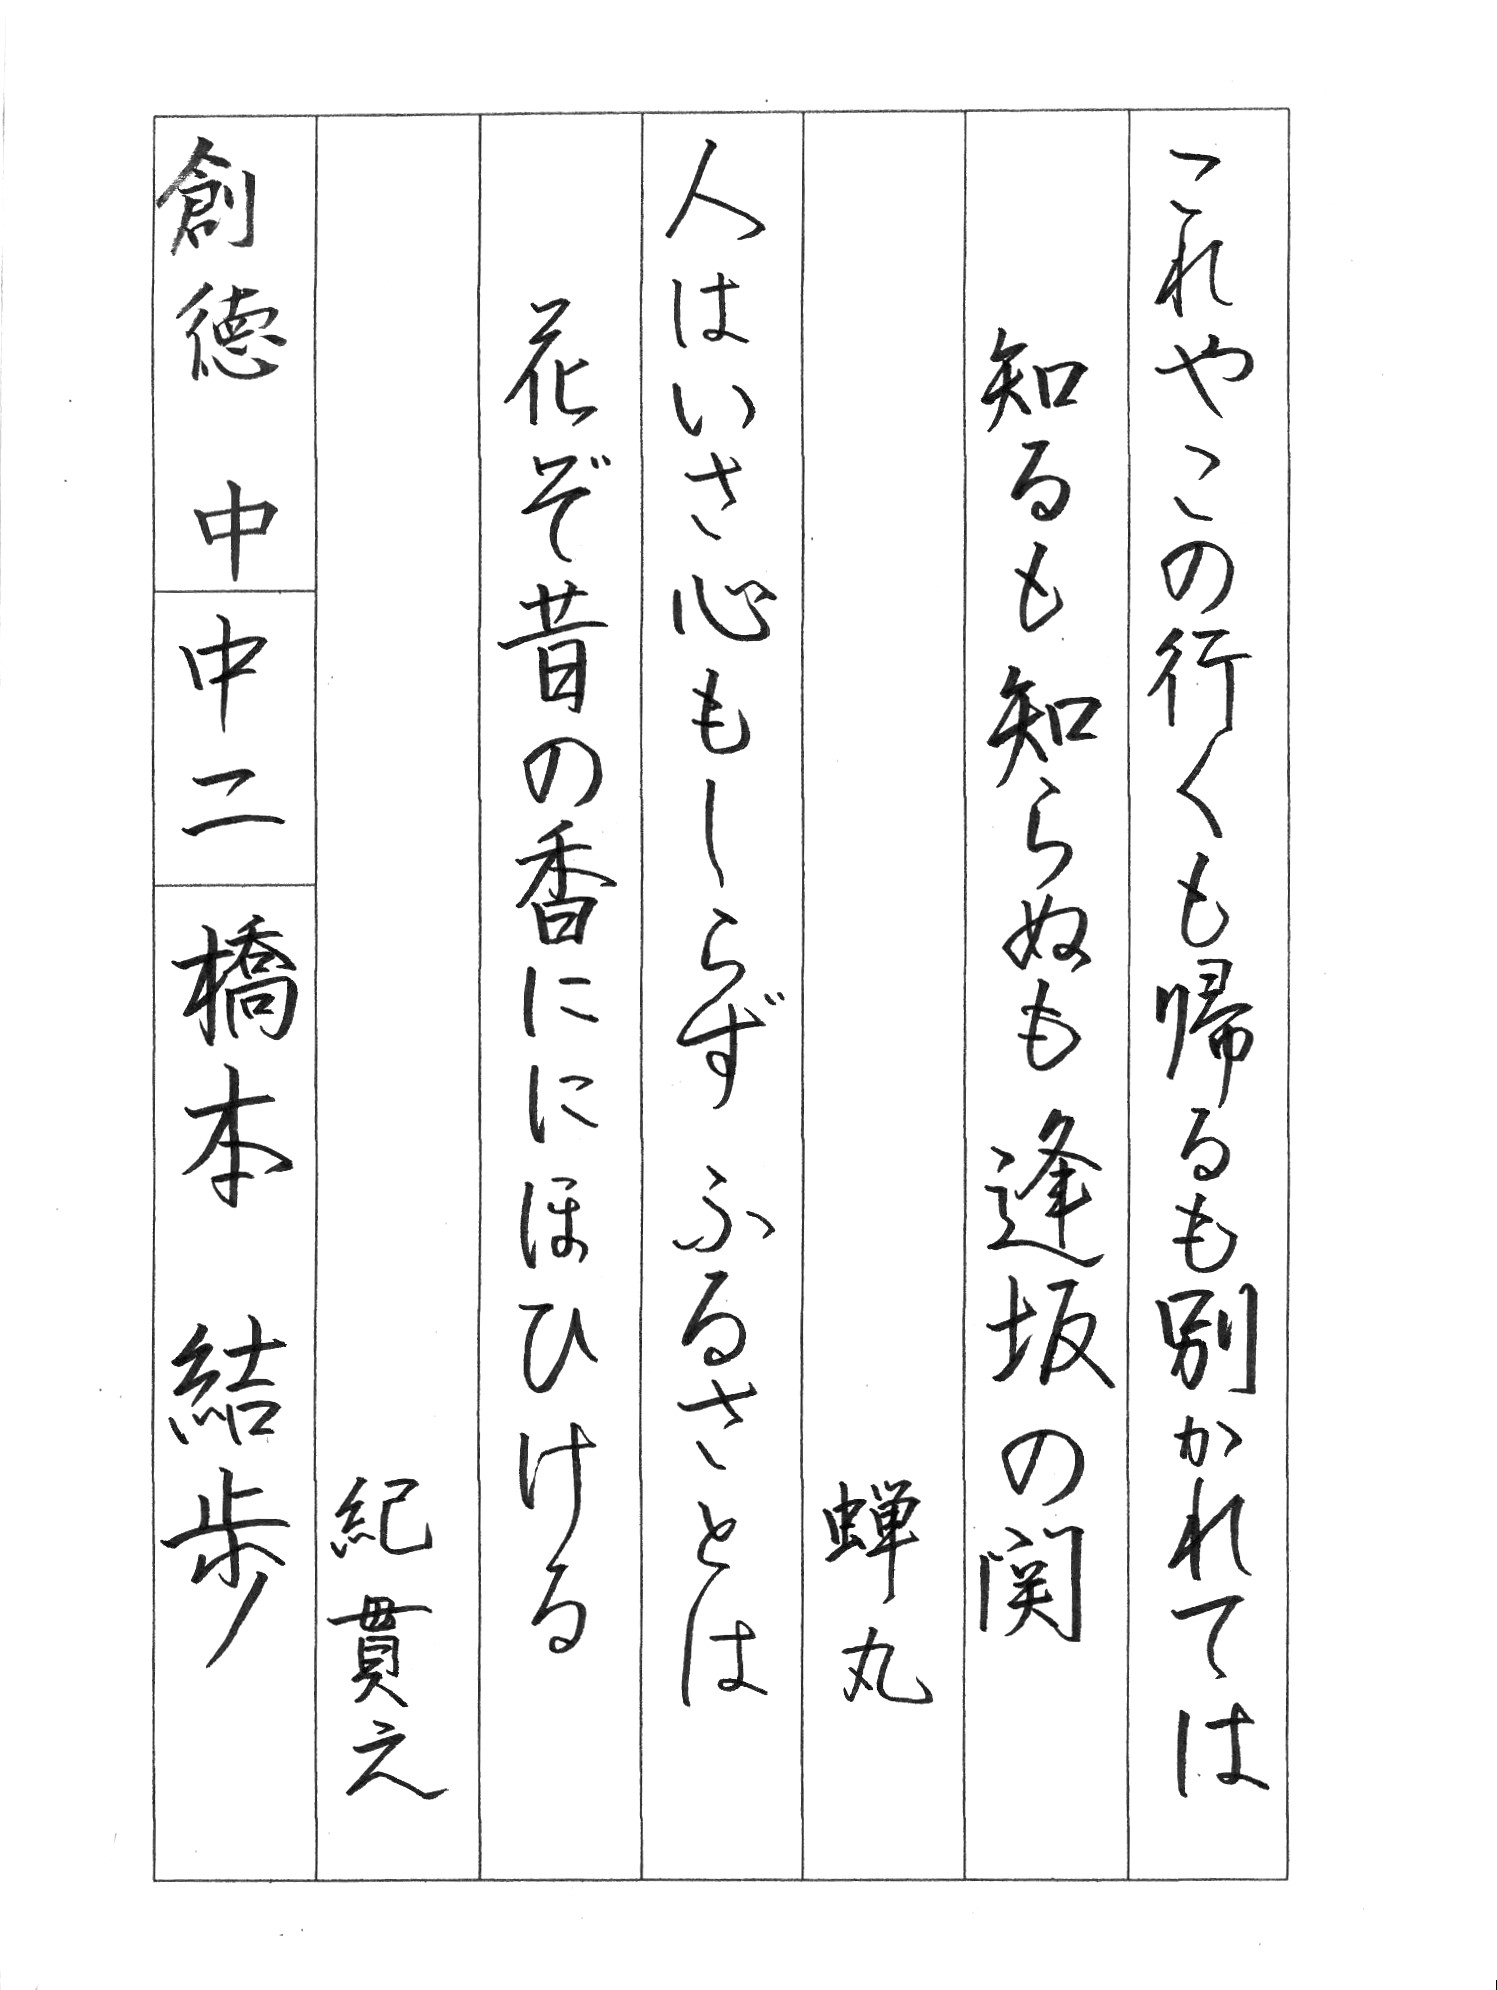 これやこの行くも帰るも別かれては
知るも知らぬも逢坂の関
蝉丸
人はいさ心もしらずふるさとは
花ぞ昔の香ににほひける
紀貫之
創徳中 中二 橋本 結歩